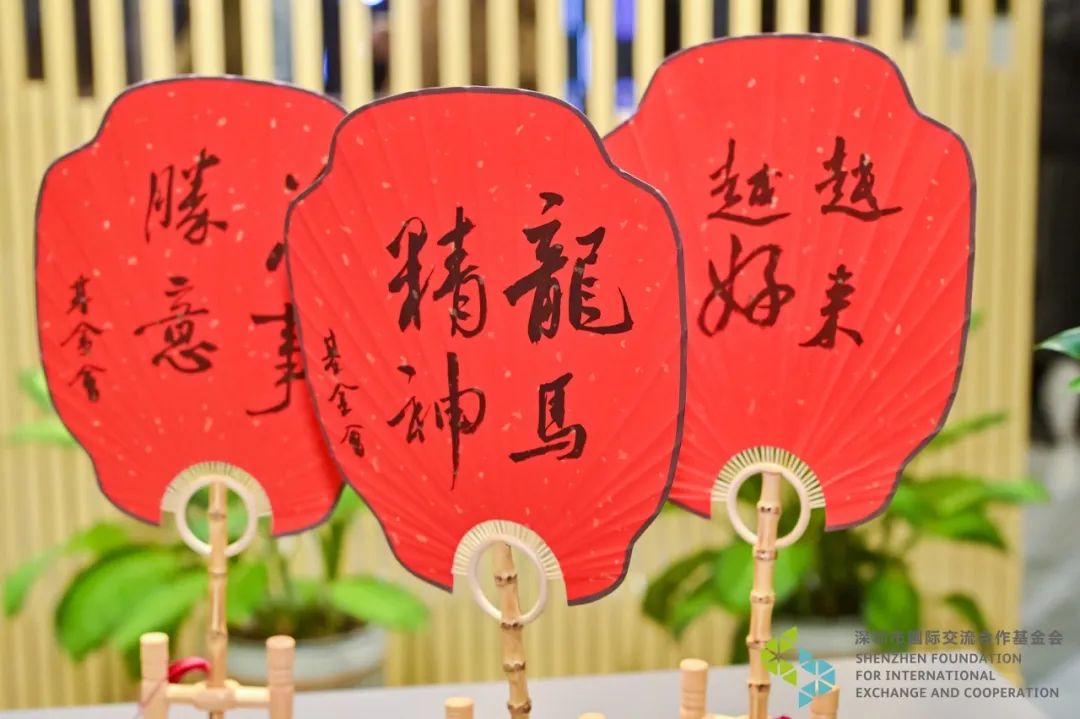 事
勝意
基金會
龍馬
精神
基金會
越来
越好
深圳市国际交流合作基金会
SHENZHEN FOUNDATION
FOR INTERNATIONAL
EXCHANGE AND COOPERATION